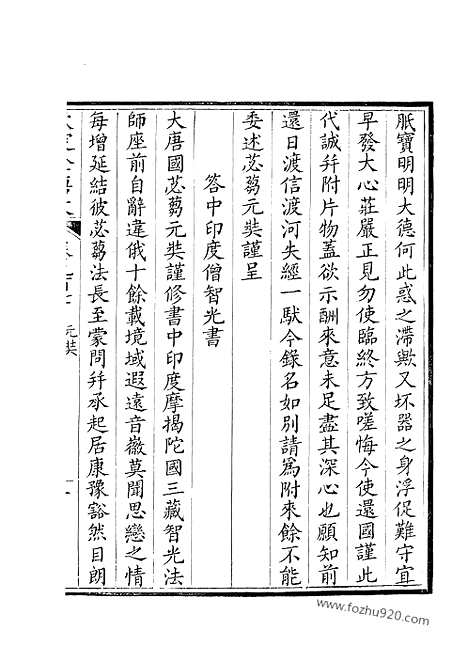 眂寶明明大德何此惑之滯歟又坏器之身浮促難守宜
早發大心莊嚴正見勿使臨終方致嗟悔今使還國謹此
代誠并附片物蓋欲示酬來意未足盡其深心也願知前
還日渡信渡河失經一馱今錄名如別請爲附來餘不能
委述苾蒭元奘謹呈
答中印度僧智光書
大唐國苾蒭元奘謹修書中印度摩揭陀國三藏智光法
師座前自辭違俄十餘載境域遐遠音徽莫聞思戀之情
每增延結彼苾蒭法長至蒙問并承起居康豫豁然目朗
元奘
www.fozhu920.com